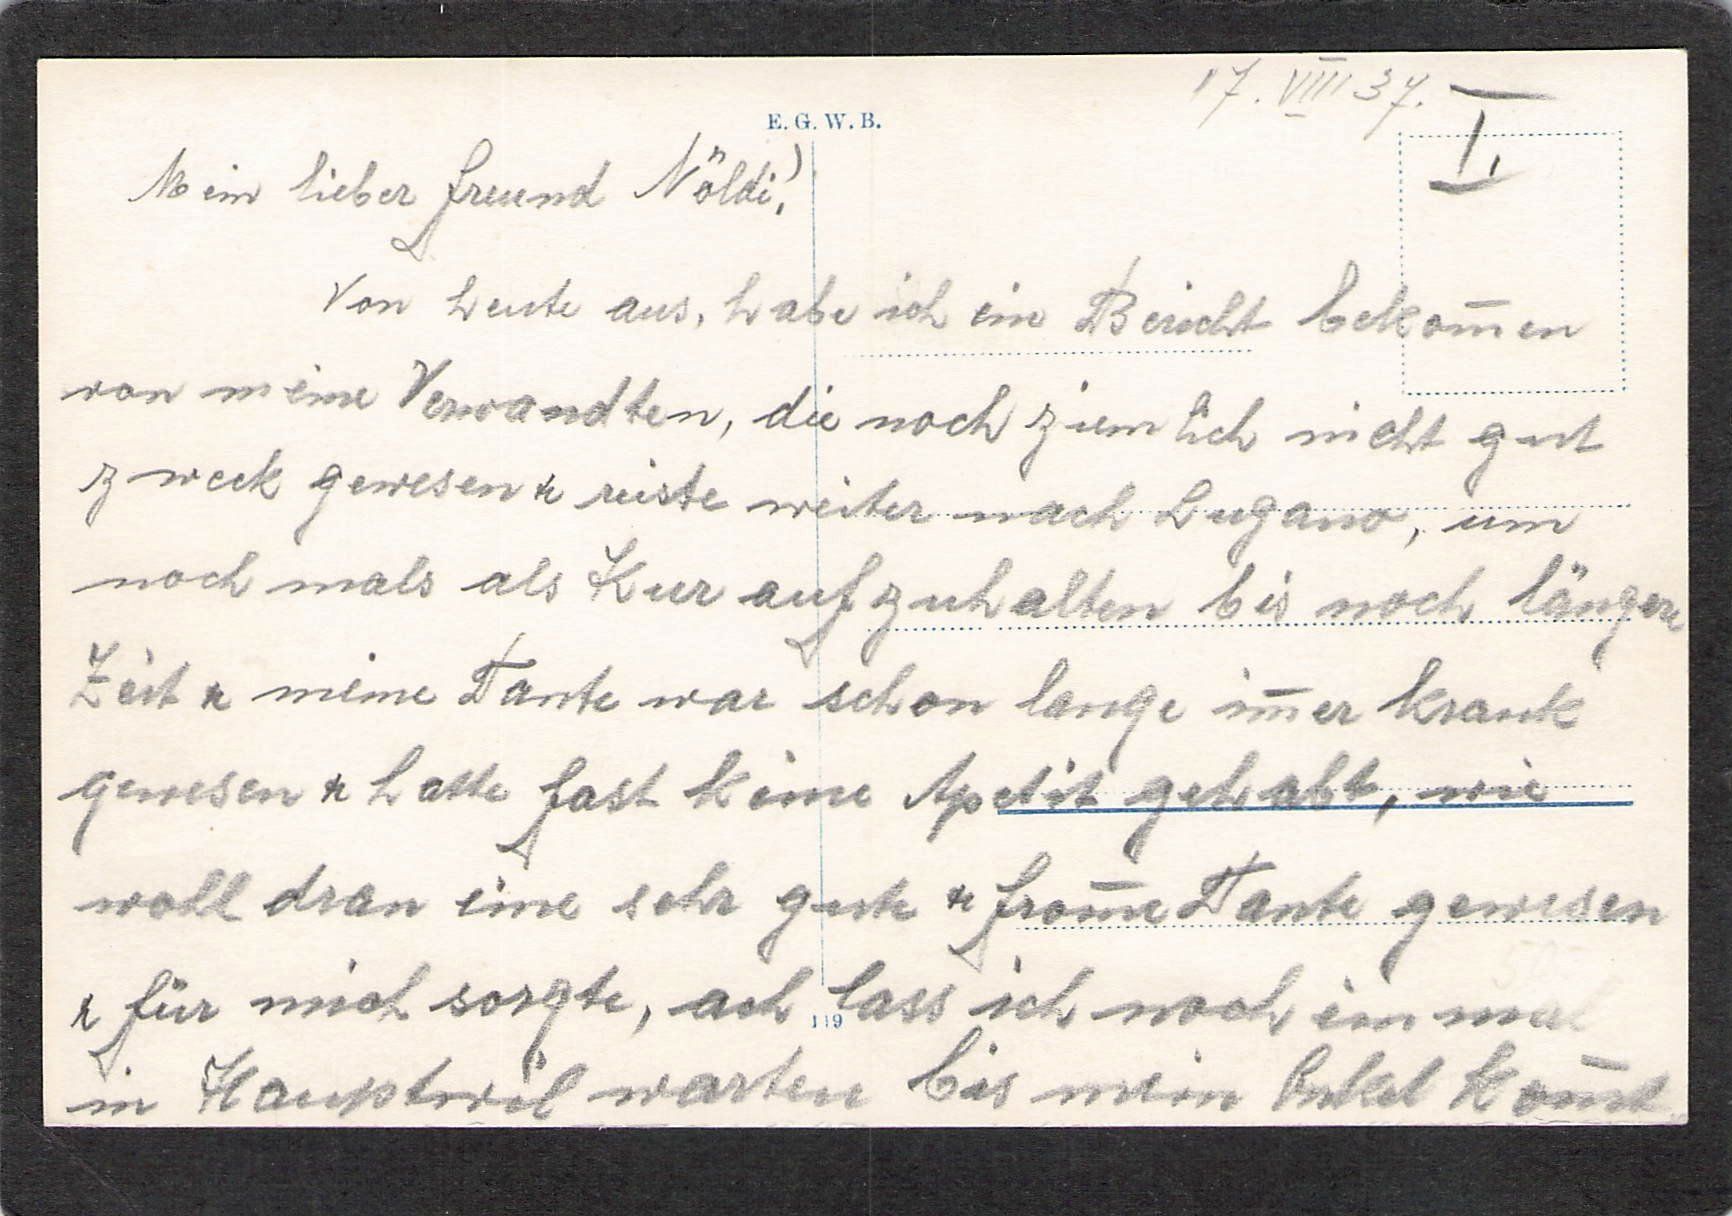 17. VIII 37.
I.
E. G. W. B.
Mein lieber Freund Nöldi!
Von heute aus, habe ich ein Bericht bekom̅en
von meine Verwandten, die noch ziemlich nicht gut
zweck gewesen & reiste weiter nach Lugano, um
noch mals als Kur aufzuhalten bis noch längere
Zeit & meine Tante war schon lange im̅er krank
gewesen & hatte fast keine Apetit gehabt, wie
woll dran eine sehr gute & from̅e Tante gewesen
& für mich sorgte, ach lass ich noch ein mal
in Hauptwil warten bis mein Onkel kom̅t
119